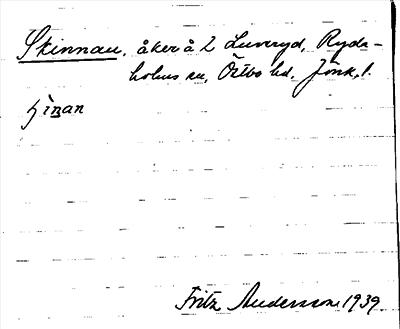 Skinnan, åker å 2 Luveryd, Ryda-
holms sn, Östbo hd. Jönk. l.
Fritz Andersson 1939